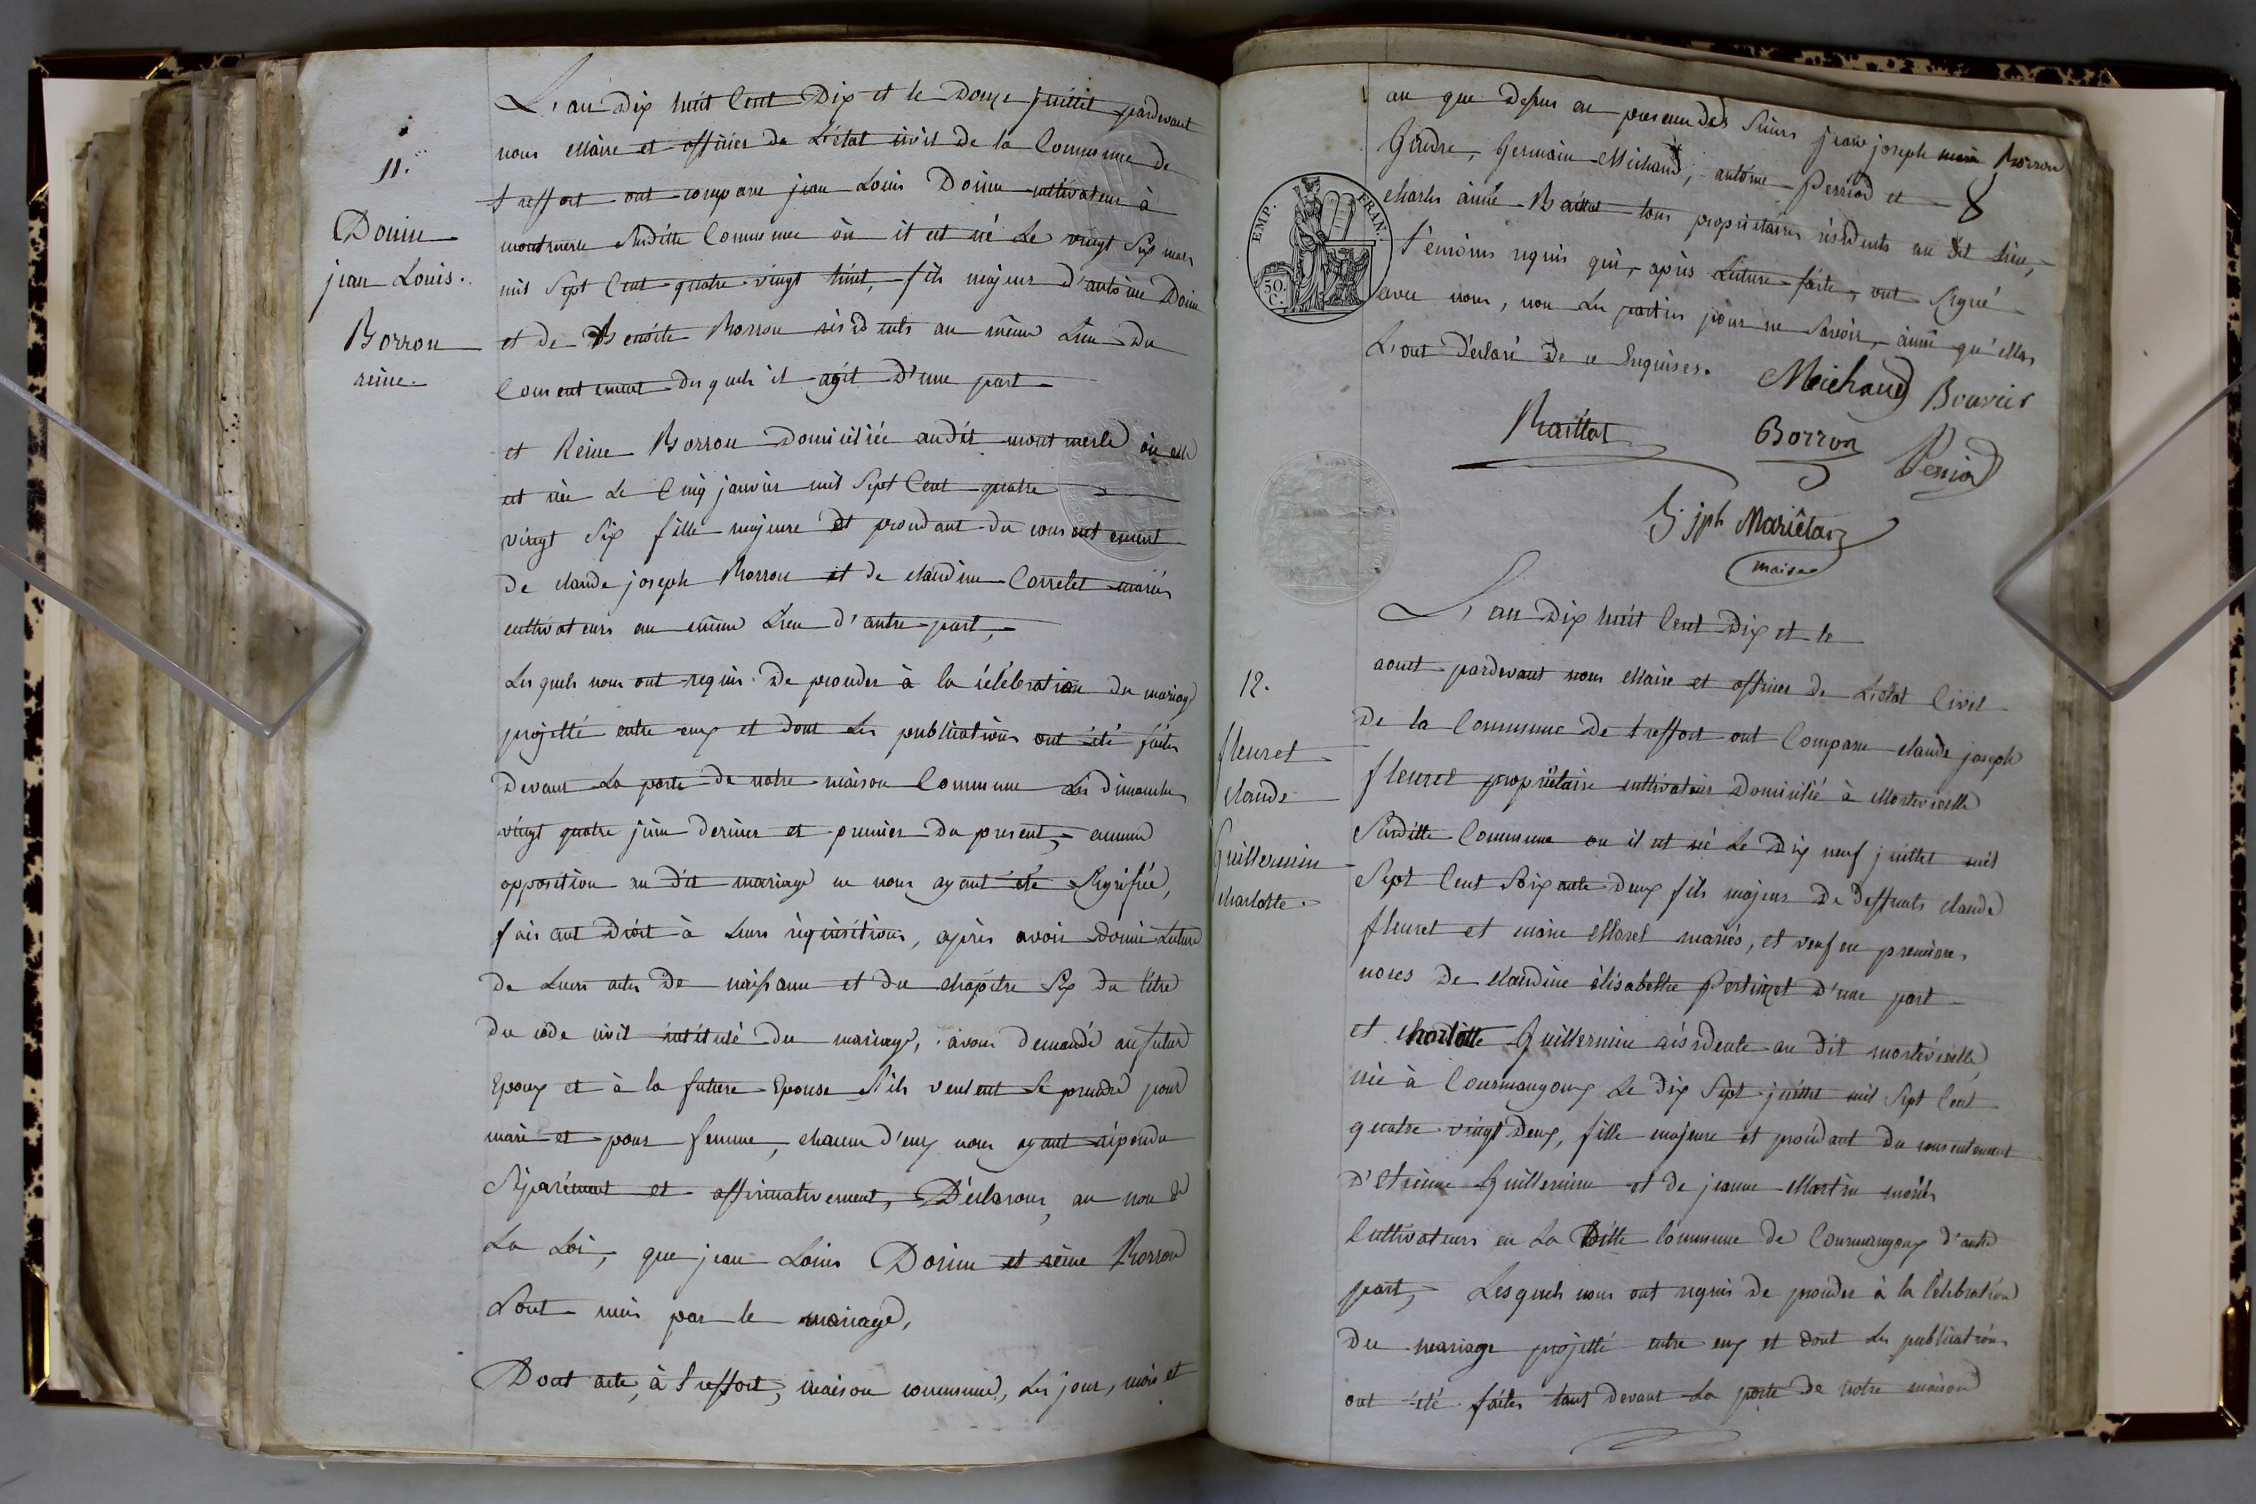 11.
Doinu
jean Louis.
Borron
reine.
L'an Dix huit Cent Dix et le Douze juillet pardevant
nous Maire et officier de L'état civil de la Commune de
treffort ont comparu jean Louis Doinu cultivateur à
montmerle Susditte Commune où il est né Le vingt Six mars
mil Sept Cent quatre vingt huit, fils majeur d'antoine Doinu
et de Benoite Borron résidents au même Lieu Du
Consentement desquels il agit D'une part
et Reine Borron Domiciliée audit montmerle où elle
est née Le Cinq janvier mil Sept Cent quatre
vingt Six fille majeure et procédant du consentement
de claude joseph Borron et de claudine Corretel mariés
cultivateurs au même Lieu d'autre part,
Lesquels nous ont requis De procéder à la célébration du mariage
projetté entre eux et dont Les publications ont été faites
Devant La porte de notre maison Commune Les dimanches
vingt quatre juin dernier et premier du present, aucune
opposition au dit mariage ne nous ayant été Signifiée,
faisant Droit à Leurs réquisitions, après avoir donné Lecture
de Leurs actes De naissance et du chapitre Six du titre
du code civil intitulé du mariage, avons demandé au futur
Epoux et à la future Epouse S'ils veulent Se prendre pour
mari et pour femme, chacun d'eux nous ayant répondu
Séparément et affirmativement, Déclarons, au nom de
La Loi, que jean Louis Doinu et reine Borron
Sont unis par le mariage,
Dont acte, à treffort, maison commune, Les jour, mois et
an que Dessus en presence des Sieurs jean joseph marie Borron
Gindre, Germain Michaud, antoine Perriod et
charles aimé Raillat tous propriétaires résidents au dit Lieu,
témoins requis qui, après Lecture faite, ont Signé
avec nous, non Les parties pour ne Savoir, ainsi qu'elles
L'ont Déclaré De ce Enquises.
EMP. FRAN.
50. C.
Michaud Bouvier
Raillat Borron Perriod
G. jph Mariétan
maire
12.
fleuret
claude
Guillermin
charlotte.
L'an Dix huit Cent Dix et le
aoust pardevant nous Maire et officier de L'état Civil
De la Commune De treffort ont Comparu claude joseph
fleuret propriétaire cultivateur Domicilié à Montevieille
Susditte Commune ou il est né Le Dix neuf juillet mil
Sept Cent Soixante deux fils majeur De deffunts claude
fleuret et marie Morel mariés, et veuf en premieres
noces De claudine élisabethe Pertinet D'une part
et charlotte Guillermin résidente au dit montévieille,
née à Courmangoux Le dix Sept juillet mil Sept Cent
quatre vingt Deux, fille majeure et procédant du consentement
D'Etienne Guillermin et de jeanne Martin mariés
Cultivateurs en La ditte Commune de Courmangoux d'autre
part, Lesquels nous ont requis De procéder à la Célébration
Du mariage projetté entre eux et dont Les publications
ont été faites tant devant La porte de notre maison